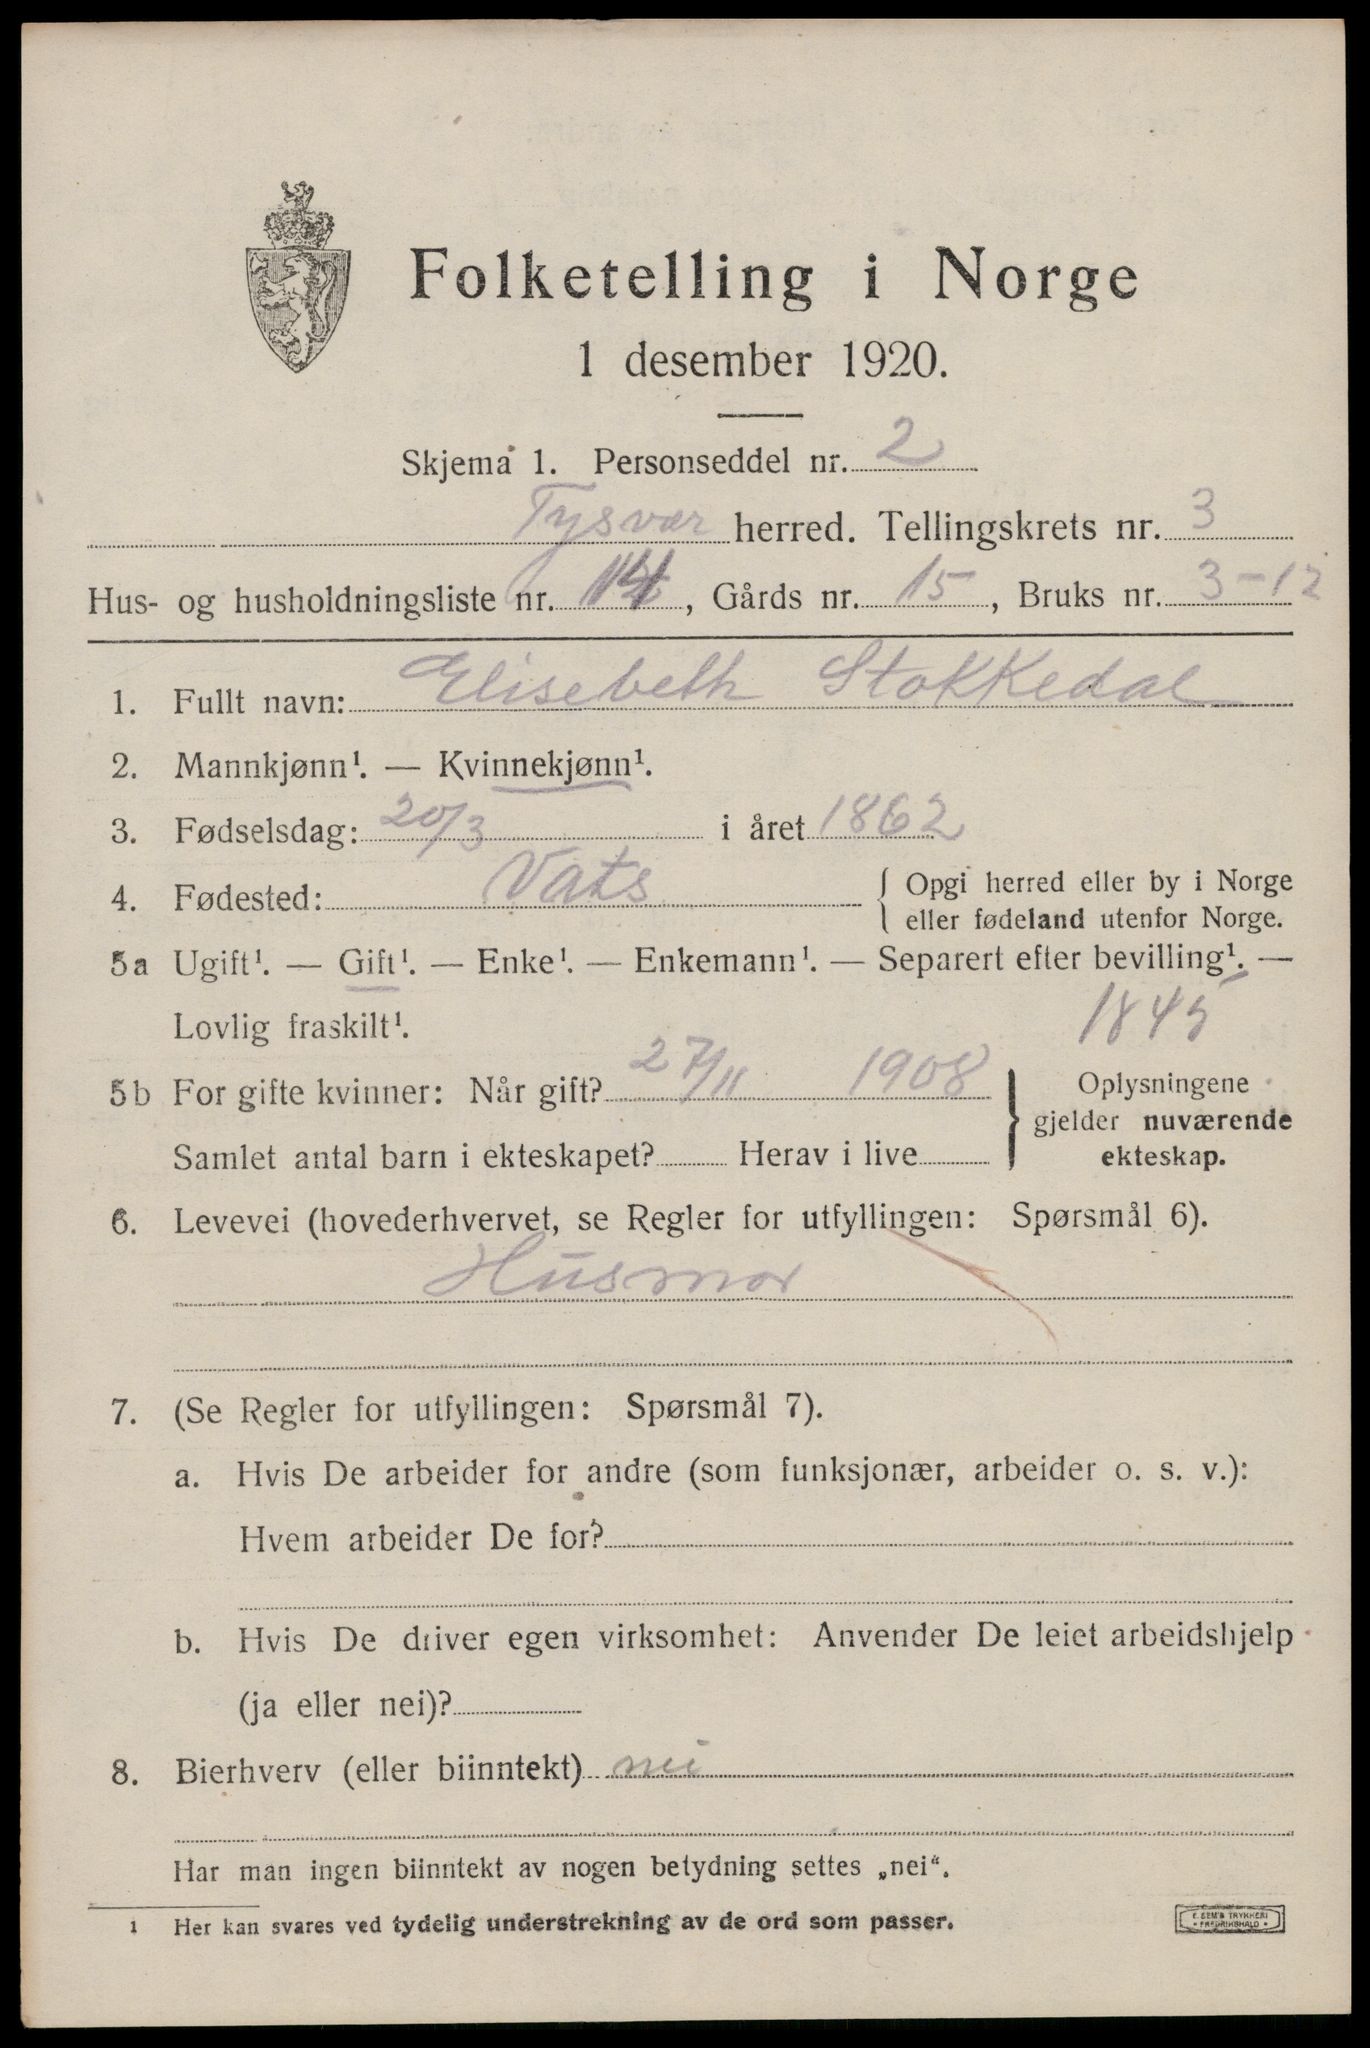 Folketelling i Norge
1 desember 1920.
Skjema 1. Personseddel nr. 2
Tysvær herred. Tellingskrets nr. 3
Hus- og husholdningsliste nr. 14, Gårds nr. 15, Bruks nr. 3-12
1. Fullt navn: Elisebeth Stokkedal
2. Mannkjønn¹. — Kvinnekjønn¹.
3. Fødselsdag: 20/3 i året 1862
4. Fødested: Vats { Opgi herred eller by i Norge
eller fødeland utenfor Norge.
5a Ugift¹. — Gift¹. — Enke¹. — Enkemann¹. — Separert efter bevilling¹. —
Lovlig fraskilt¹. 1845
5b For gifte kvinner: Når gift? 27/11 1908 } Oplysningene
gjelder nuværende
Samlet antal barn i ekteskapet? Herav i live ekteskap.
6. Levevei (hovederhvervet, se Regler for utfyllingen: Spørsmål 6).
Husmor
7. (Se Regler for utfyllingen: Spørsmål 7).
a. Hvis De arbeider for andre (som funksjonær, arbeider o. s. v.):
Hvem arbeider De for?
b. Hvis De driver egen virksomhet: Anvender De leiet arbeidshjelp
(ja eller nei)?
8. Bierhverv (eller biinntekt) nei
Har man ingen biinntekt av nogen betydning settes „nei“.
1 Her kan svares ved tydelig understrekning av de ord som passer.
E. SEM'S TRYKKERI
• FREDRIKSHALD •